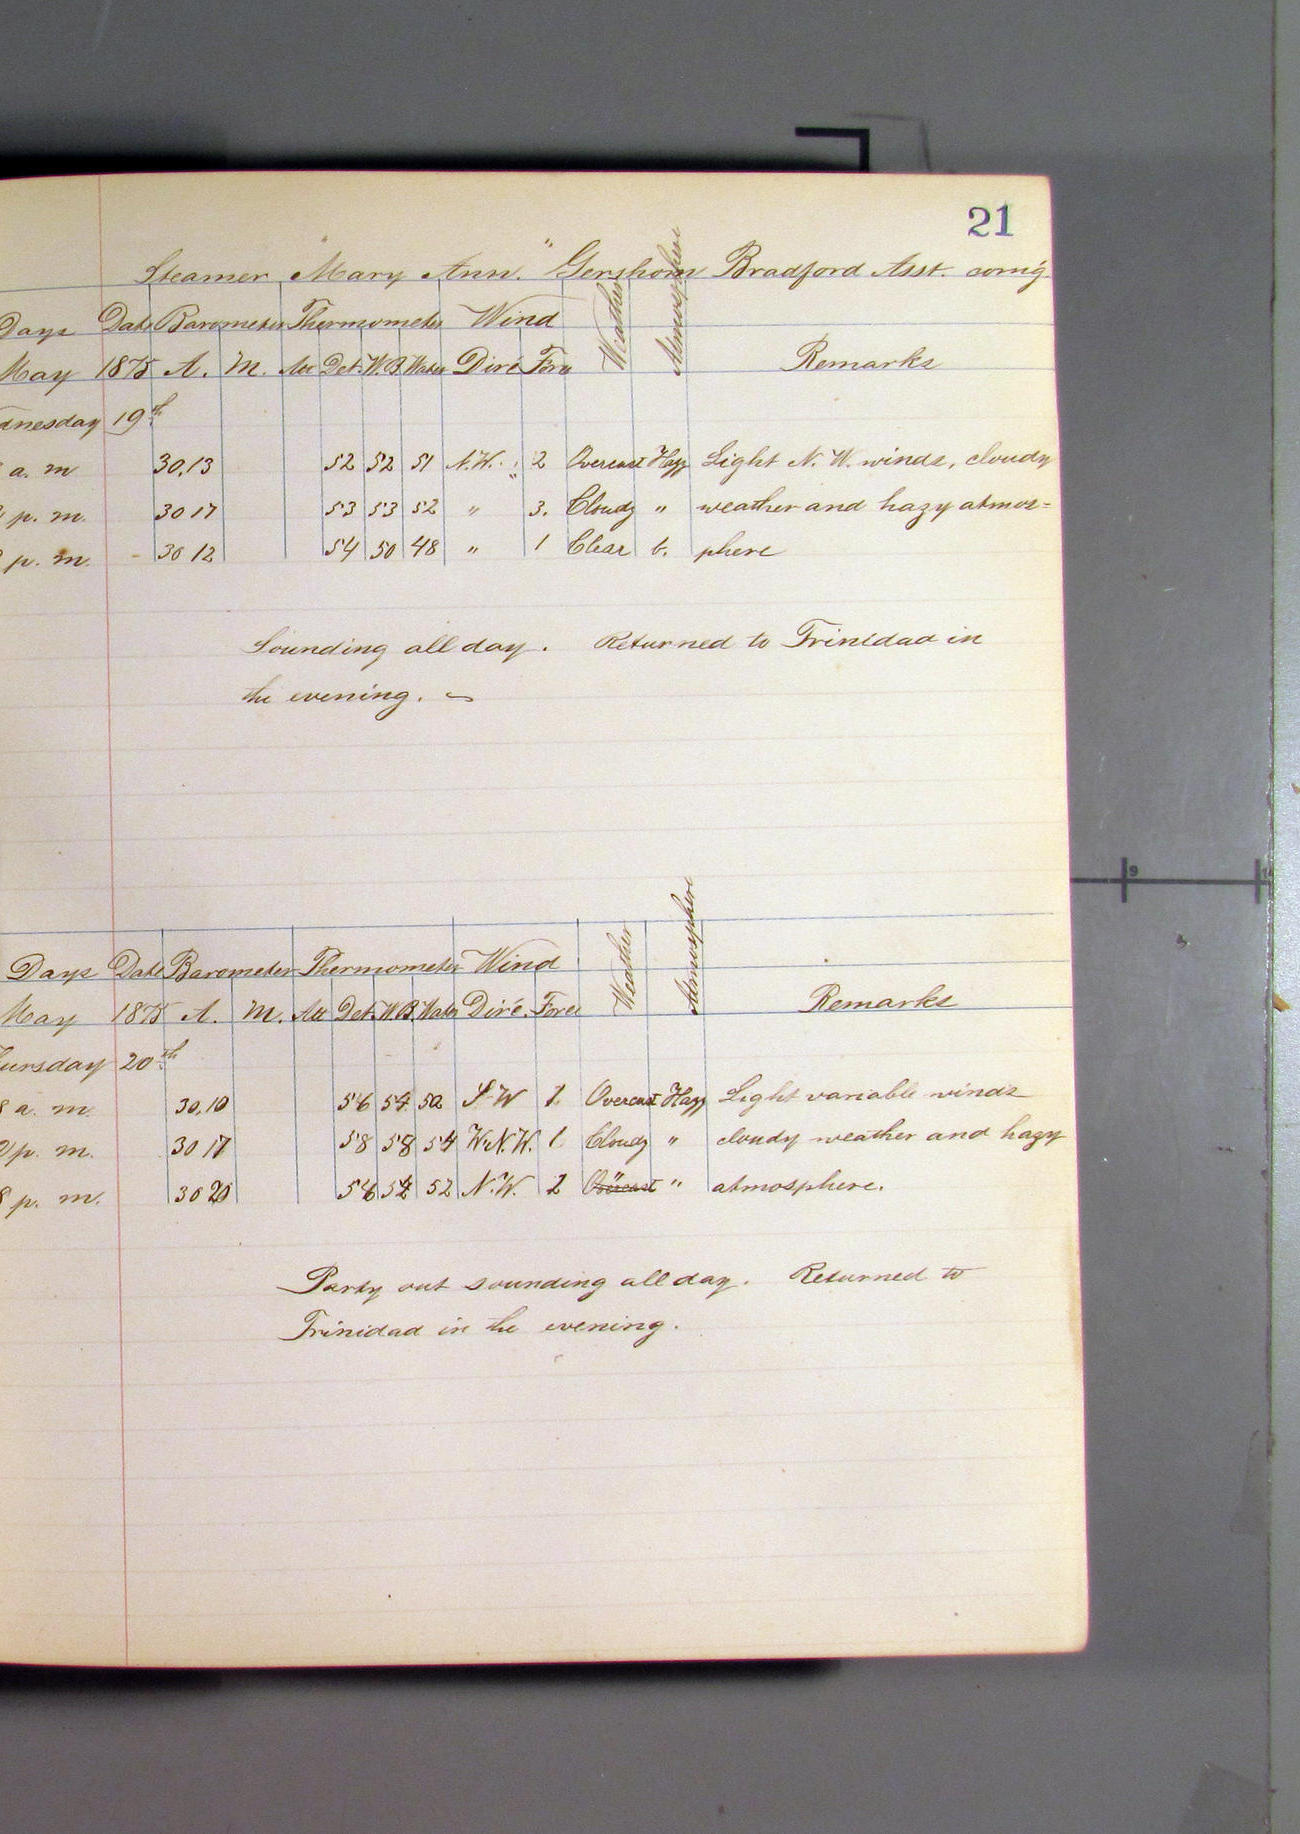 21
Steamer "Mary Ann." Gershom Bradford Asst. com'g
Days Date Barometer Thermometer Wind Weather Atmosphere
May 1875 A. M. Att Det. W.B. Water Direc Force Remarks
dnesday 19th
a. m 30.13 52 52 51 N.W. 2 Overcast Hazy Light N. W. winds, cloudy
p. m. 30 17 53 53 52 " 3. Cloudy " weather and hazy atmos=
p. m. 30 12 54 50 48 " 1 Clear b. phere
Sounding all day. Returned to Trinidad in
the evening.
Days Date Barometer Thermometer Wind Weather Atmosphere
May 1875 A. M. Att Det. W.B. Water Direc. Force Remarks
ursday 20th
8 a. m. 30.10 56 54 52 S W 1 Overcast Hazy Light variable winds
p. m. 30 17 58 58 54 W.N.W. 1 Cloudy " cloudy weather and hazy
8 p. m. 30 20 56 52 N.W. 2 Overcast " atmosphere.
Party out sounding all day. Returned to
Trinidad in the evening.
9